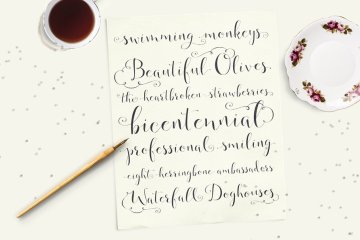 swimming monkeys
Beautiful Olives
the heartbroken strawberries
bicentennial
professional smiling
eight herringbone ambassadors
Waterfall Doghouses